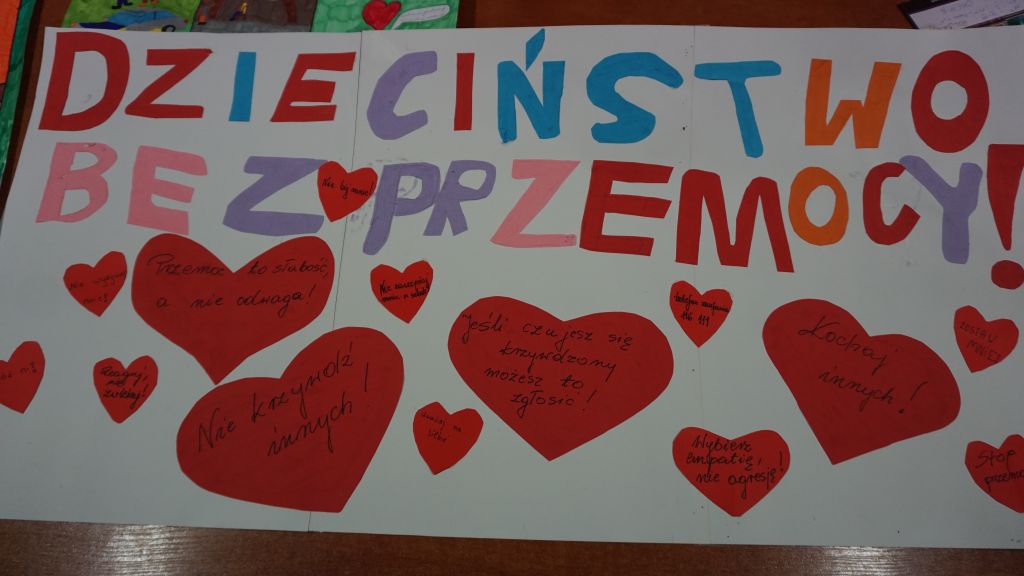 DZIECIŃSTWO
BEZ PRZEMOCY!
Nie bij mnie!
Przemoc to słabość,
a nie odwaga!
Nie krzywdź
innych!
Reaguj
nie
zwlekaj!
Nie zaczepiaj
mnie w szkole!
Uważaj na
siebie
Jeśli czujesz się
krzywdzony
możesz to
zgłosić!
telefon zaufania
116 111
Wybierz
empatię,
nie agresję!
Kochaj
innych!
ZOSTAW
MNIE!
Stop